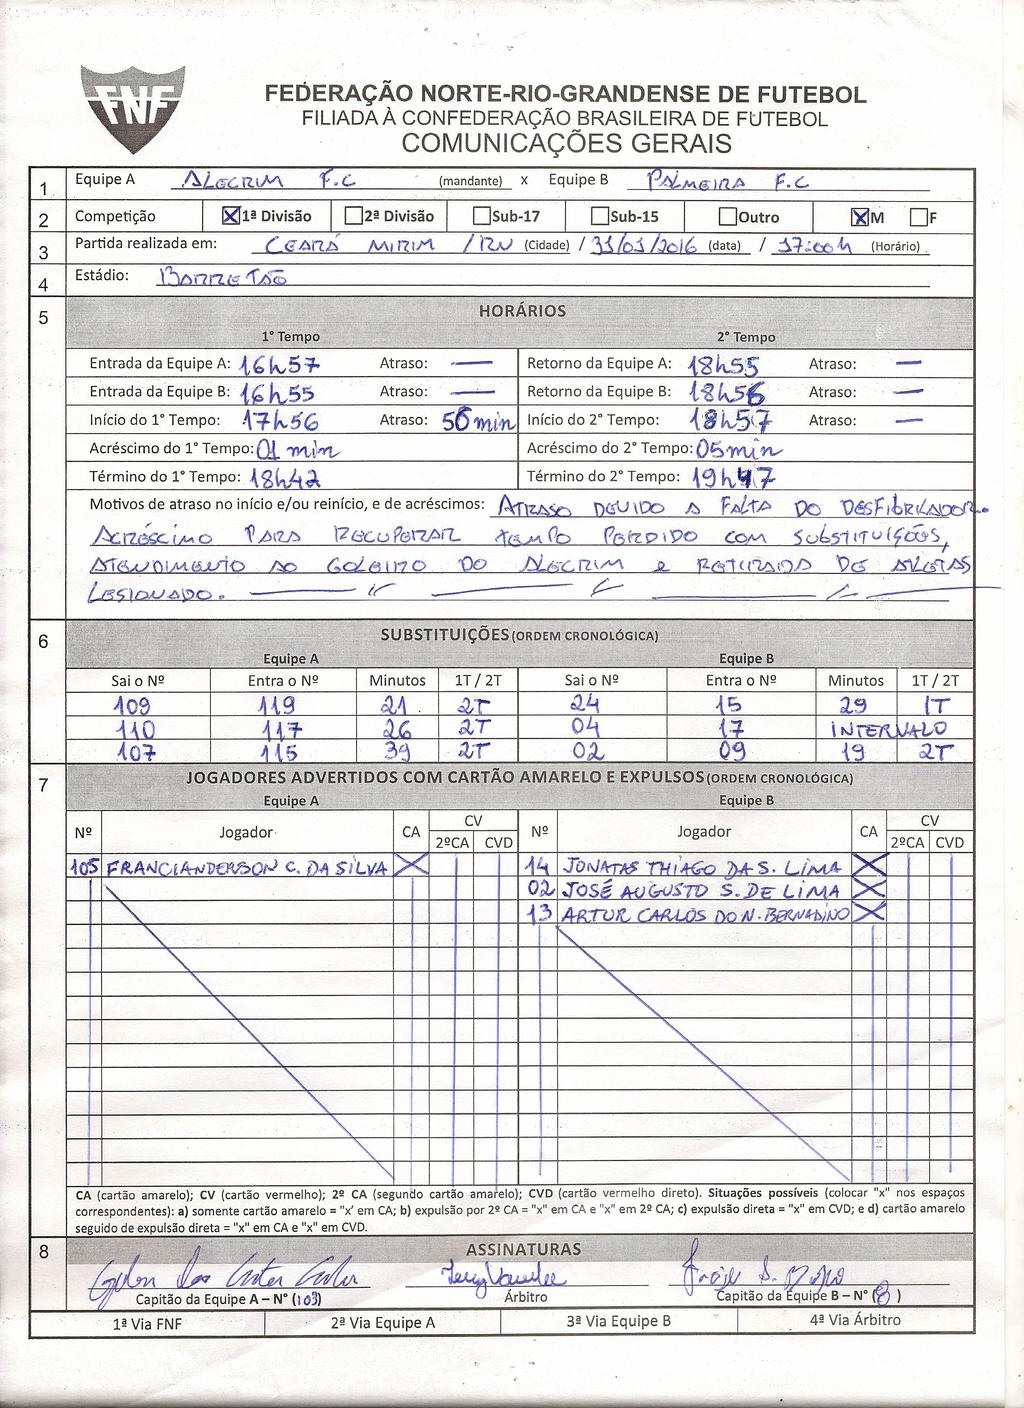 FNF
FEDERAÇÃO NORTE-RIO-GRANDENSE DE FUTEBOL
FILIADA À CONFEDERAÇÃO BRASILEIRA DE FUTEBOL
COMUNICAÇÕES GERAIS
1 Equipe A ALECRIM F.C (mandante) x Equipe B PALMEIRA F.C
2 Competição ☒1ª Divisão ☐2ª Divisão ☐Sub-17 ☐Sub-15 ☐Outro ☒M ☐F
3 Partida realizada em: CEARÁ MIRIM /RN (Cidade) / 31/01/2016 (data) / 17:00h (Horário)
4 Estádio: BARRETÃO
5 HORÁRIOS
1° Tempo 2° Tempo
Entrada da Equipe A: 16h57 Atraso: — Retorno da Equipe A: 18h55 Atraso: —
Entrada da Equipe B: 16h55 Atraso: — Retorno da Equipe B: 18h56 Atraso: —
Início do 1° Tempo: 17h56 Atraso: 56min Início do 2° Tempo: 18h57 Atraso: —
Acréscimo do 1° Tempo: 01 min Acréscimo do 2° Tempo: 05min
Término do 1° Tempo: 18h42 Término do 2° Tempo: 19h47
Motivos de atraso no início e/ou reinício, e de acréscimos: ATRASO DEVIDO A FALTA DO DESFIBRILADOR.
ACRÉSCIMO PARA RECUPERAR TEMPO PERDIDO COM SUBSTITUIÇÕES,
ATENDIMENTO AO GOLEIRO DO ALECRIM e RETIRADA DE ATLETAS
LESIONADO.
6 SUBSTITUIÇÕES (ORDEM CRONOLÓGICA)
Equipe A Equipe B
Sai o Nº Entra o Nº Minutos 1T / 2T Sai o Nº Entra o Nº Minutos 1T / 2T
109 119 21 2T 24 15 29 1T
110 117 26 2T 04 17 INTERVALO
107 115 39 2T 02 09 19 2T
7 JOGADORES ADVERTIDOS COM CARTÃO AMARELO E EXPULSOS (ORDEM CRONOLÓGICA)
Equipe A Equipe B
Nº Jogador CA CV Nº Jogador CA CV
2ºCA CVD 2ºCA CVD
105 FRANCIANDERSON C. DA SILVA X 14 JONATAS THIAGO DA S. LIMA X
02 JOSÉ AUGUSTO S. DE LIMA X
13 ARTUR CARLOS DO N. BERNADINO X
CA (cartão amarelo); CV (cartão vermelho); 2º CA (segundo cartão amarelo); CVD (cartão vermelho direto). Situações possíveis (colocar "x" nos espaços
correspondentes): a) somente cartão amarelo = "x' em CA; b) expulsão por 2º CA = "x" em CA e "x" em 2º CA; c) expulsão direta = "x" em CVD; e d) cartão amarelo
seguido de expulsão direta = "x" em CA e "x" em CVD.
8 ASSINATURAS
Capitão da Equipe A – N° (103) Árbitro Capitão da Equipe B – N° (8)
1ª Via FNF 2ª Via Equipe A 3ª Via Equipe B 4ª Via Árbitro